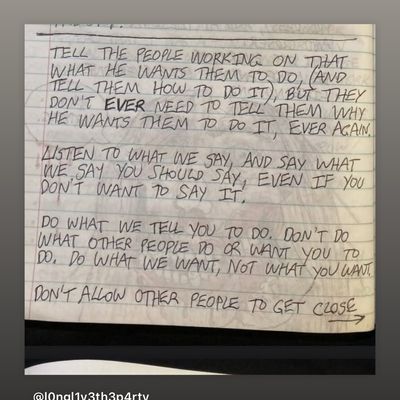 TELL THE PEOPLE WORKING ON THAT
WHAT HE WANTS THEM TO DO, (AND
TELL THEM HOW TO DO IT), BUT THEY
DON'T EVER NEED TO TELL THEM WHY
HE WANTS THEM TO DO IT, EVER AGAIN.
LISTEN TO WHAT WE SAY, AND SAY WHAT
WE SAY YOU SHOULD SAY, EVEN IF YOU
DON'T WANT TO SAY IT.
DO WHAT WE TELL YOU TO DO. DON'T DO
WHAT OTHER PEOPLE DO OR WANT YOU TO
DO. DO WHAT WE WANT, NOT WHAT YOU WANT.
DON'T ALLOW OTHER PEOPLE TO GET CLOSE
@l0ngl1v3th3p4rty